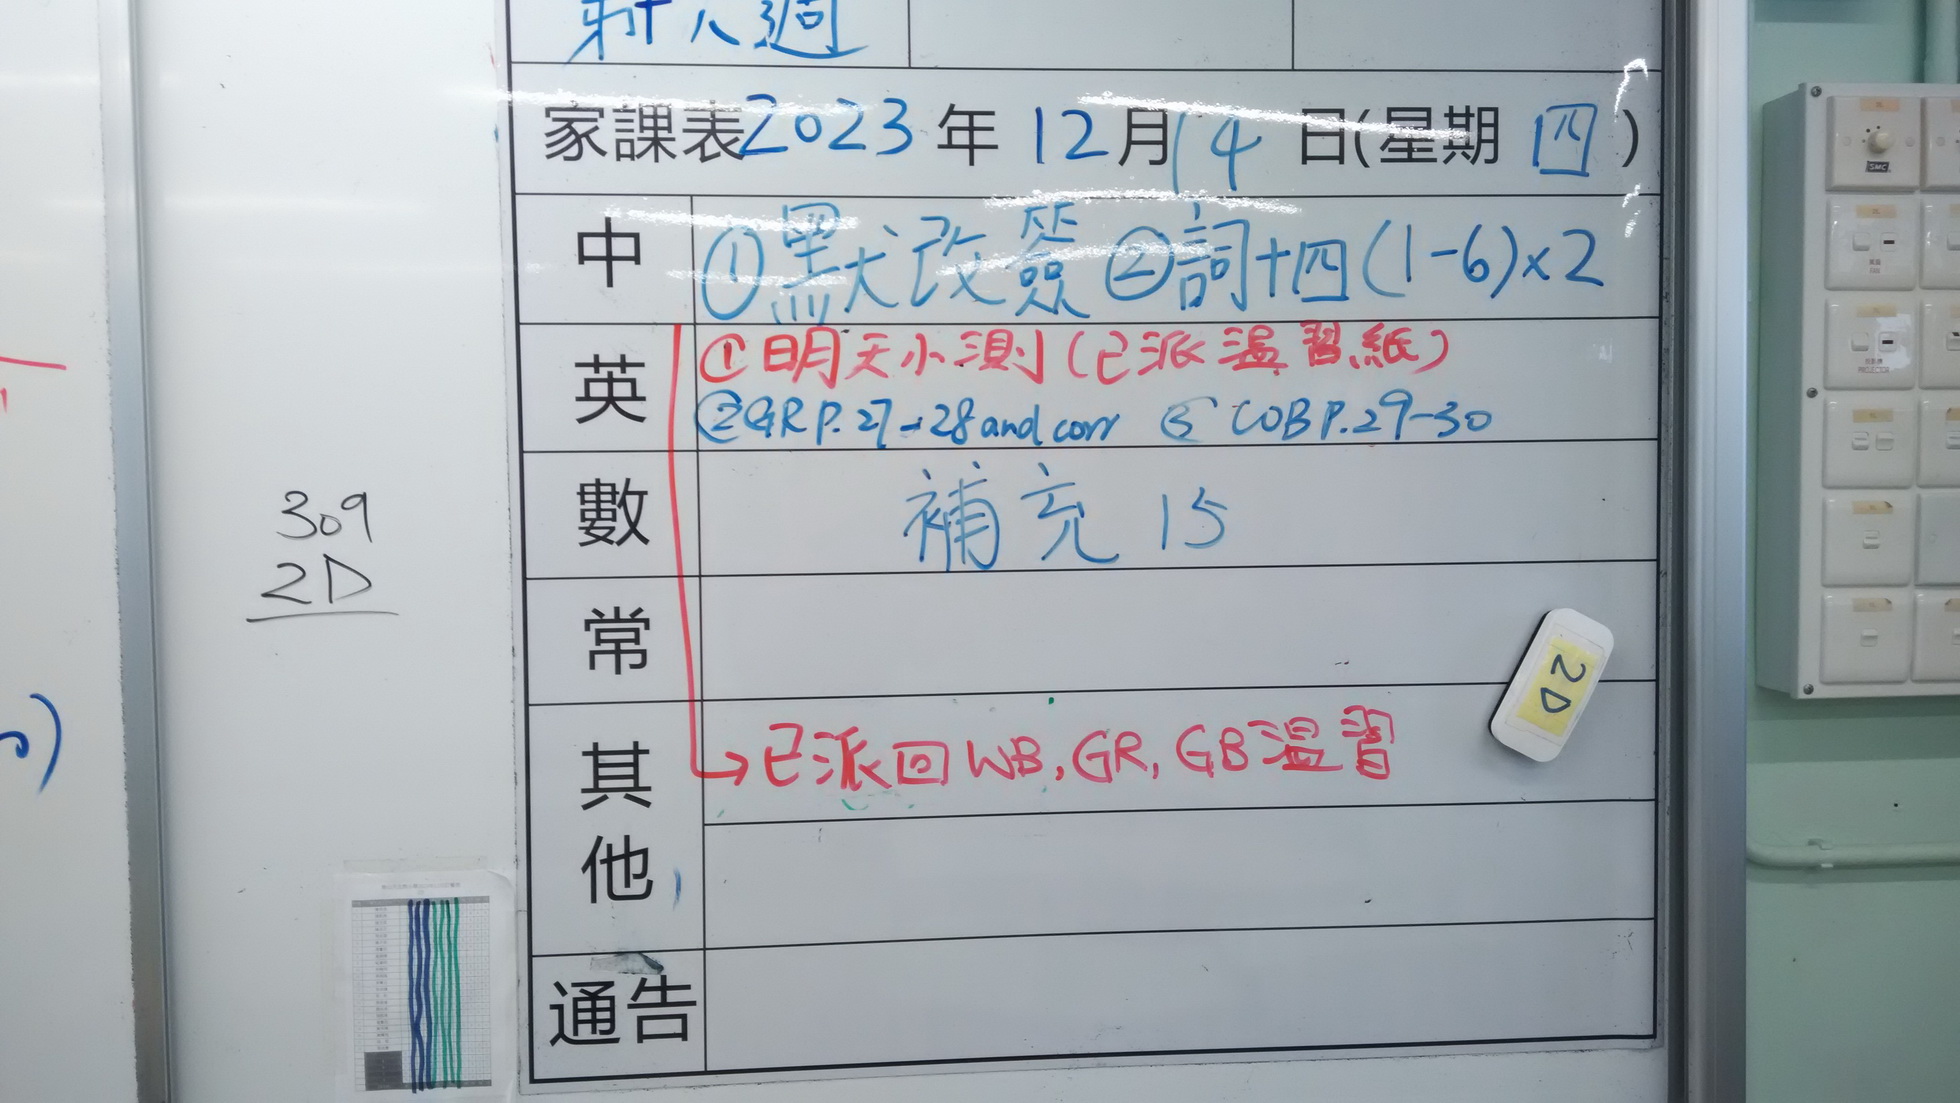 第十八週
家課表 2023 年 12 月 14 日(星期 四 )
中 ①默改簽 ②詞十四(1-6)x2
英 ①明天小測(已派溫習紙)
②GR P.27-28 and corr ③ WB P.29-30
數 補充 15
常
其他 →已派回 WB, GR, GB 溫習
通告
309
2D
2D
SMC